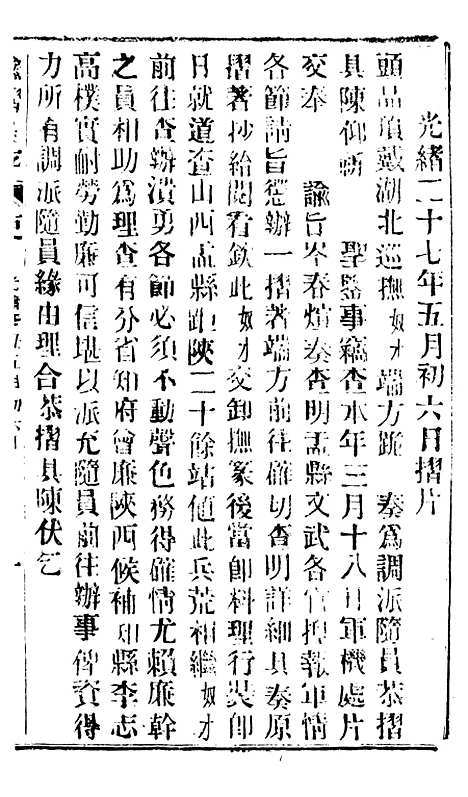 光緒二十七年五月初六日摺片
頭品頂戴湖北巡撫奴才端方跪　奏爲調派隨員恭摺
具陳仰祈　聖鑒事竊查本年三月十八日軍機處片
交奉　諭旨岑春煊奏查明盂縣文武各官捏報軍情
各節請旨懲辦一摺著端方前往確切查明詳細具奏原
摺著抄給閱看欽此奴才交卸撫篆後當卽料理行裝卽
日就道查山西盂縣距陝二十餘站値此兵荒相繼奴才
前往查辦潰勇各節必須不動聲色務得確情尤賴廉幹
之員相助爲理查有分省知府曾廉陝西候補知縣李志
高樸實耐勞勤廉可信堪以派充隨員前往辦事俾資得
力所有調派隨員緣由理合恭摺具陳伏乞
五月初六日　一